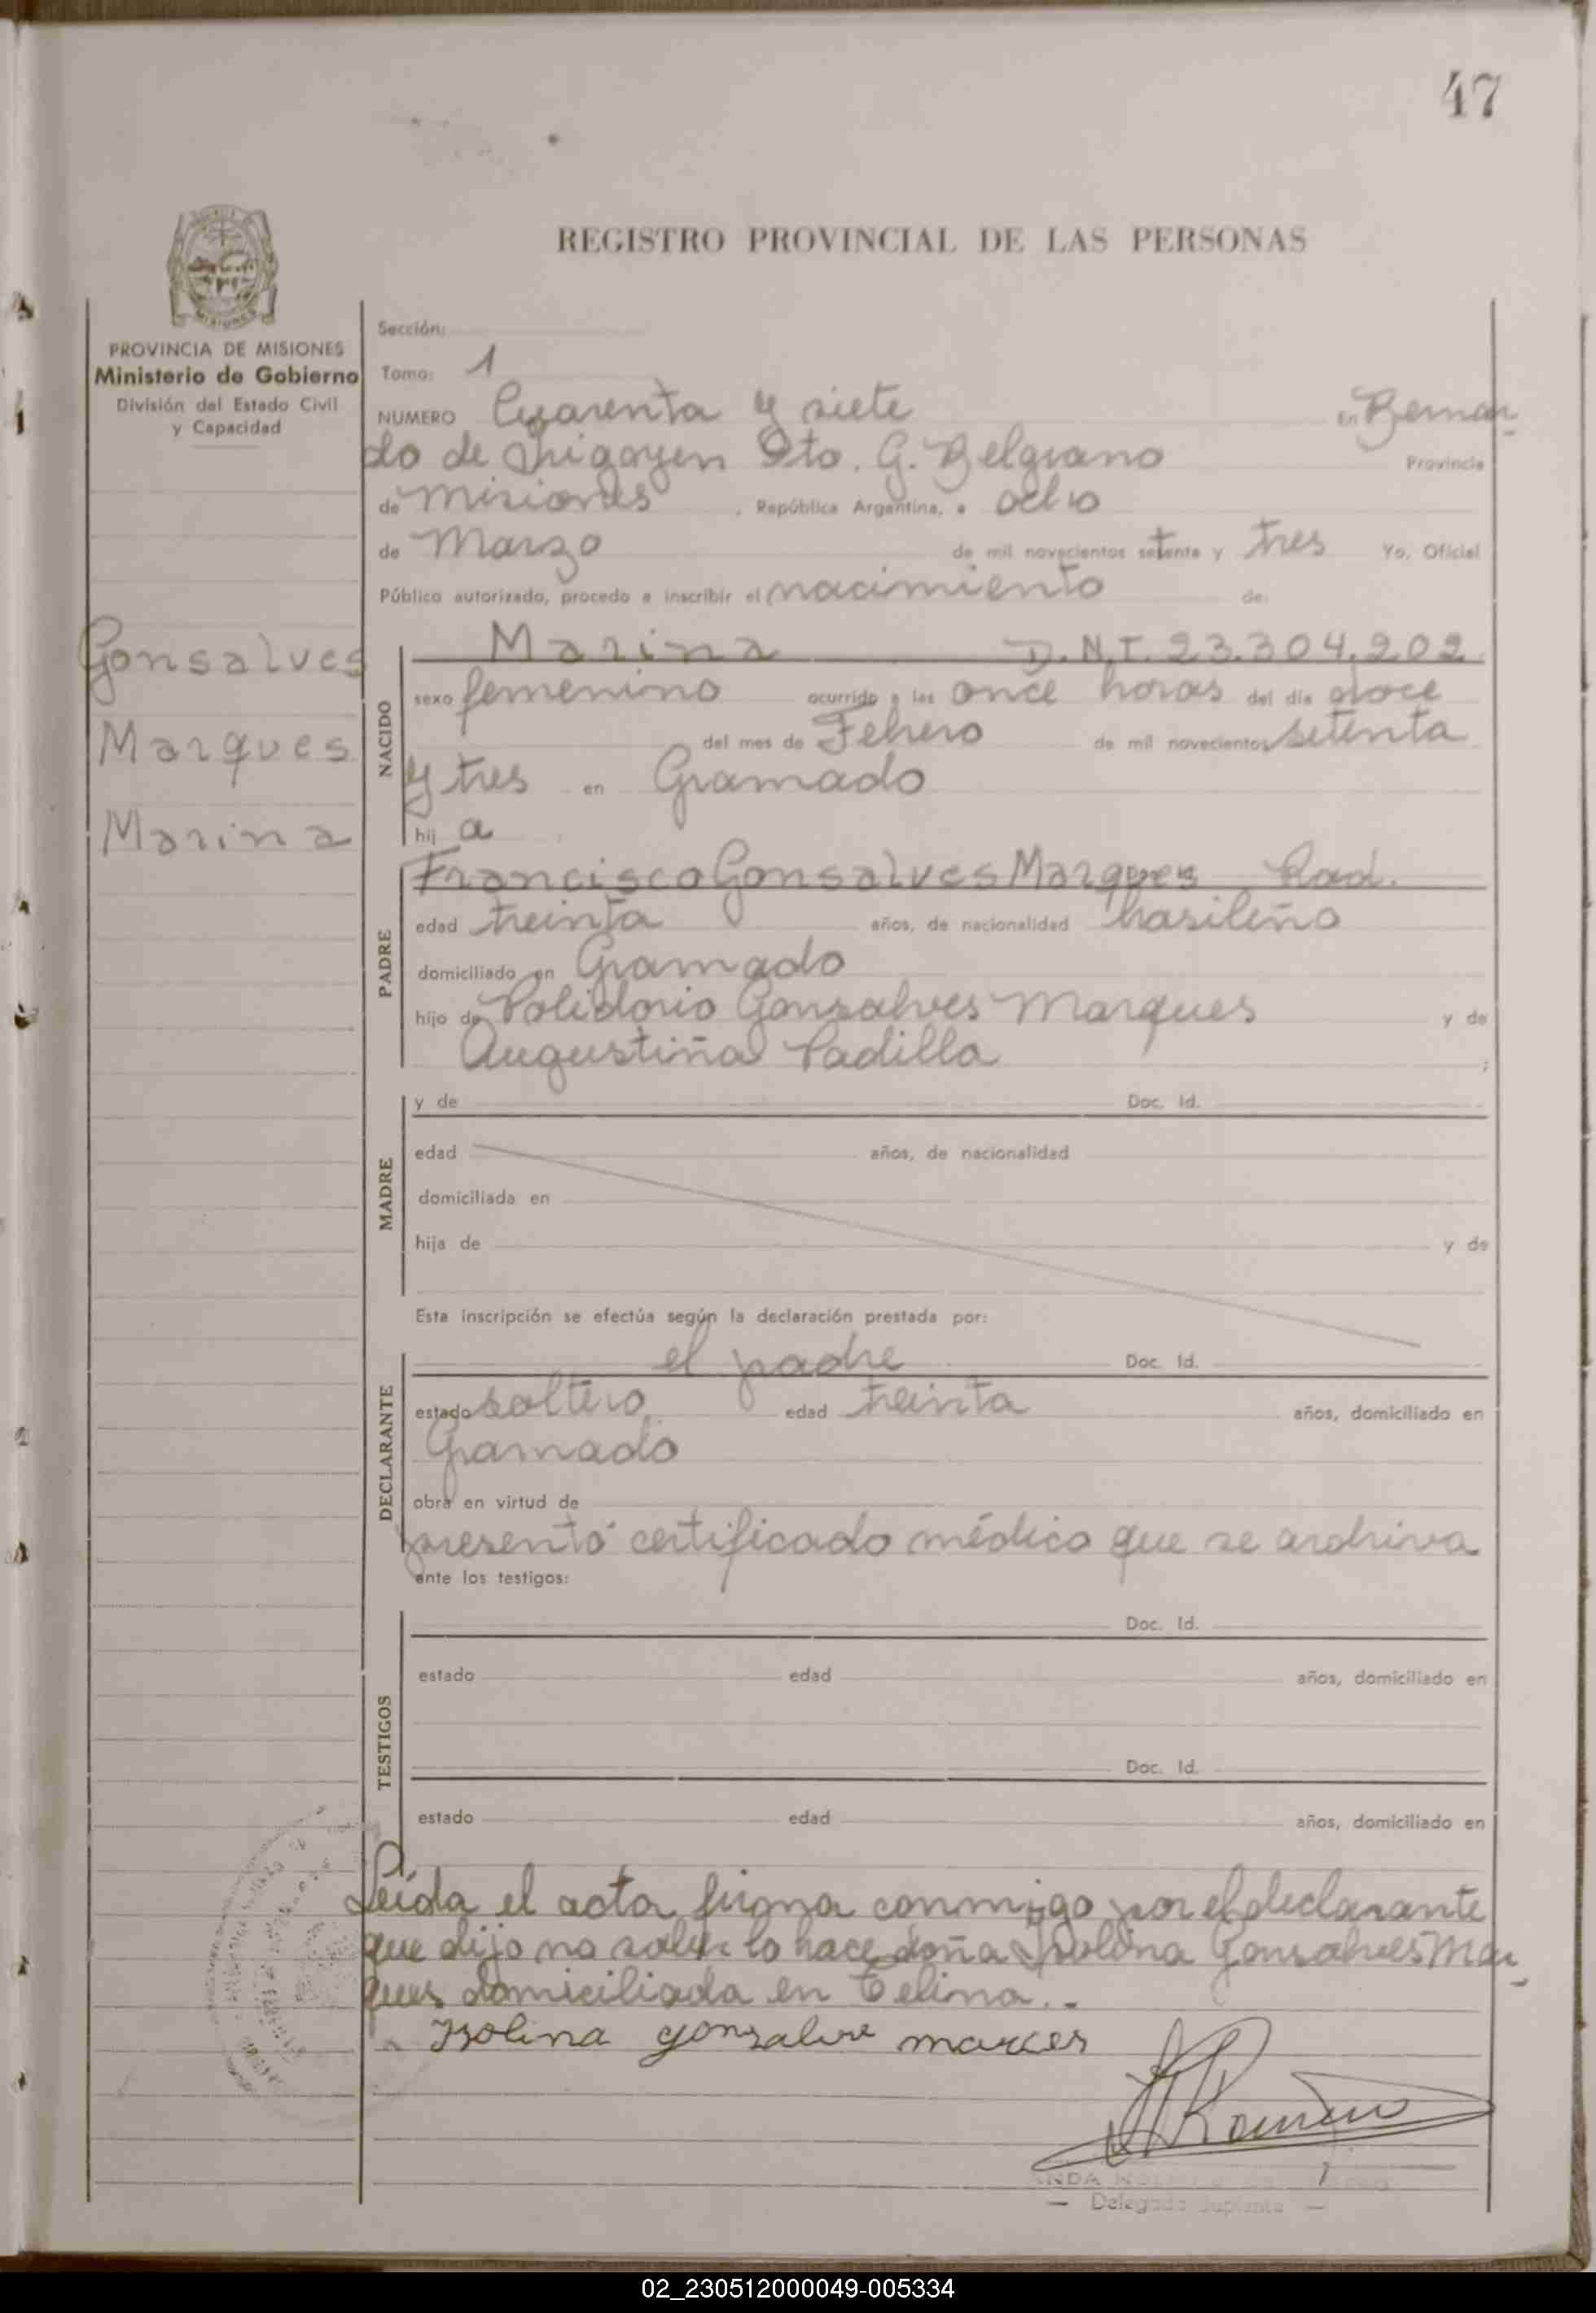 47
REGISTRO PROVINCIAL DE LAS PERSONAS
PROVINCIA DE MISIONES
Ministerio de Gobierno
División del Estado Civil
y Capacidad
Gonsalves
Marques
Marina
Sección:
Tomo: 1
NUMERO Cuarenta y siete en Bernar-
do de Irigoyen Dto. G. Belgrano Provincia
de Misiones, República Argentina, a ocho
de Marzo de mil novecientos setenta y tres Yo, Oficial
Público autorizado, procedo a inscribir el nacimiento de:
NACIDO
Marina D.N.I. 23.304.202
sexo femenino ocurrido a las once horas del día doce
del mes de Febrero de mil novecientos setenta
y tres en Gramado
hij a
PADRE
Francisco Gonsalves Marques Rad.
edad treinta años, de nacionalidad brasileño
domiciliado en Gramado
hijo de Polidorio Gonsalves Marques y de
Augustiña Padilla ;
MADRE
y de Doc. Id.
edad años, de nacionalidad
domiciliada en
hija de y de
Esta inscripción se efectúa según la declaración prestada por:
DECLARANTE
el padre Doc. Id.
estado soltero edad treinta años, domiciliado en
Gramado
obra en virtud de
presentó certificado médico que se archiva
ante los testigos:
TESTIGOS
Doc. Id.
estado edad años, domiciliado en
Doc. Id.
estado edad años, domiciliado en
Leída el acta firma conmigo por el declarante
que dijo no saber lo hace doña Isolina Gonsalves Mar-
ques domiciliada en Celina..-
Isolina gonsalve marces
Romero
Delegada Suplente
02_230512000049-005334